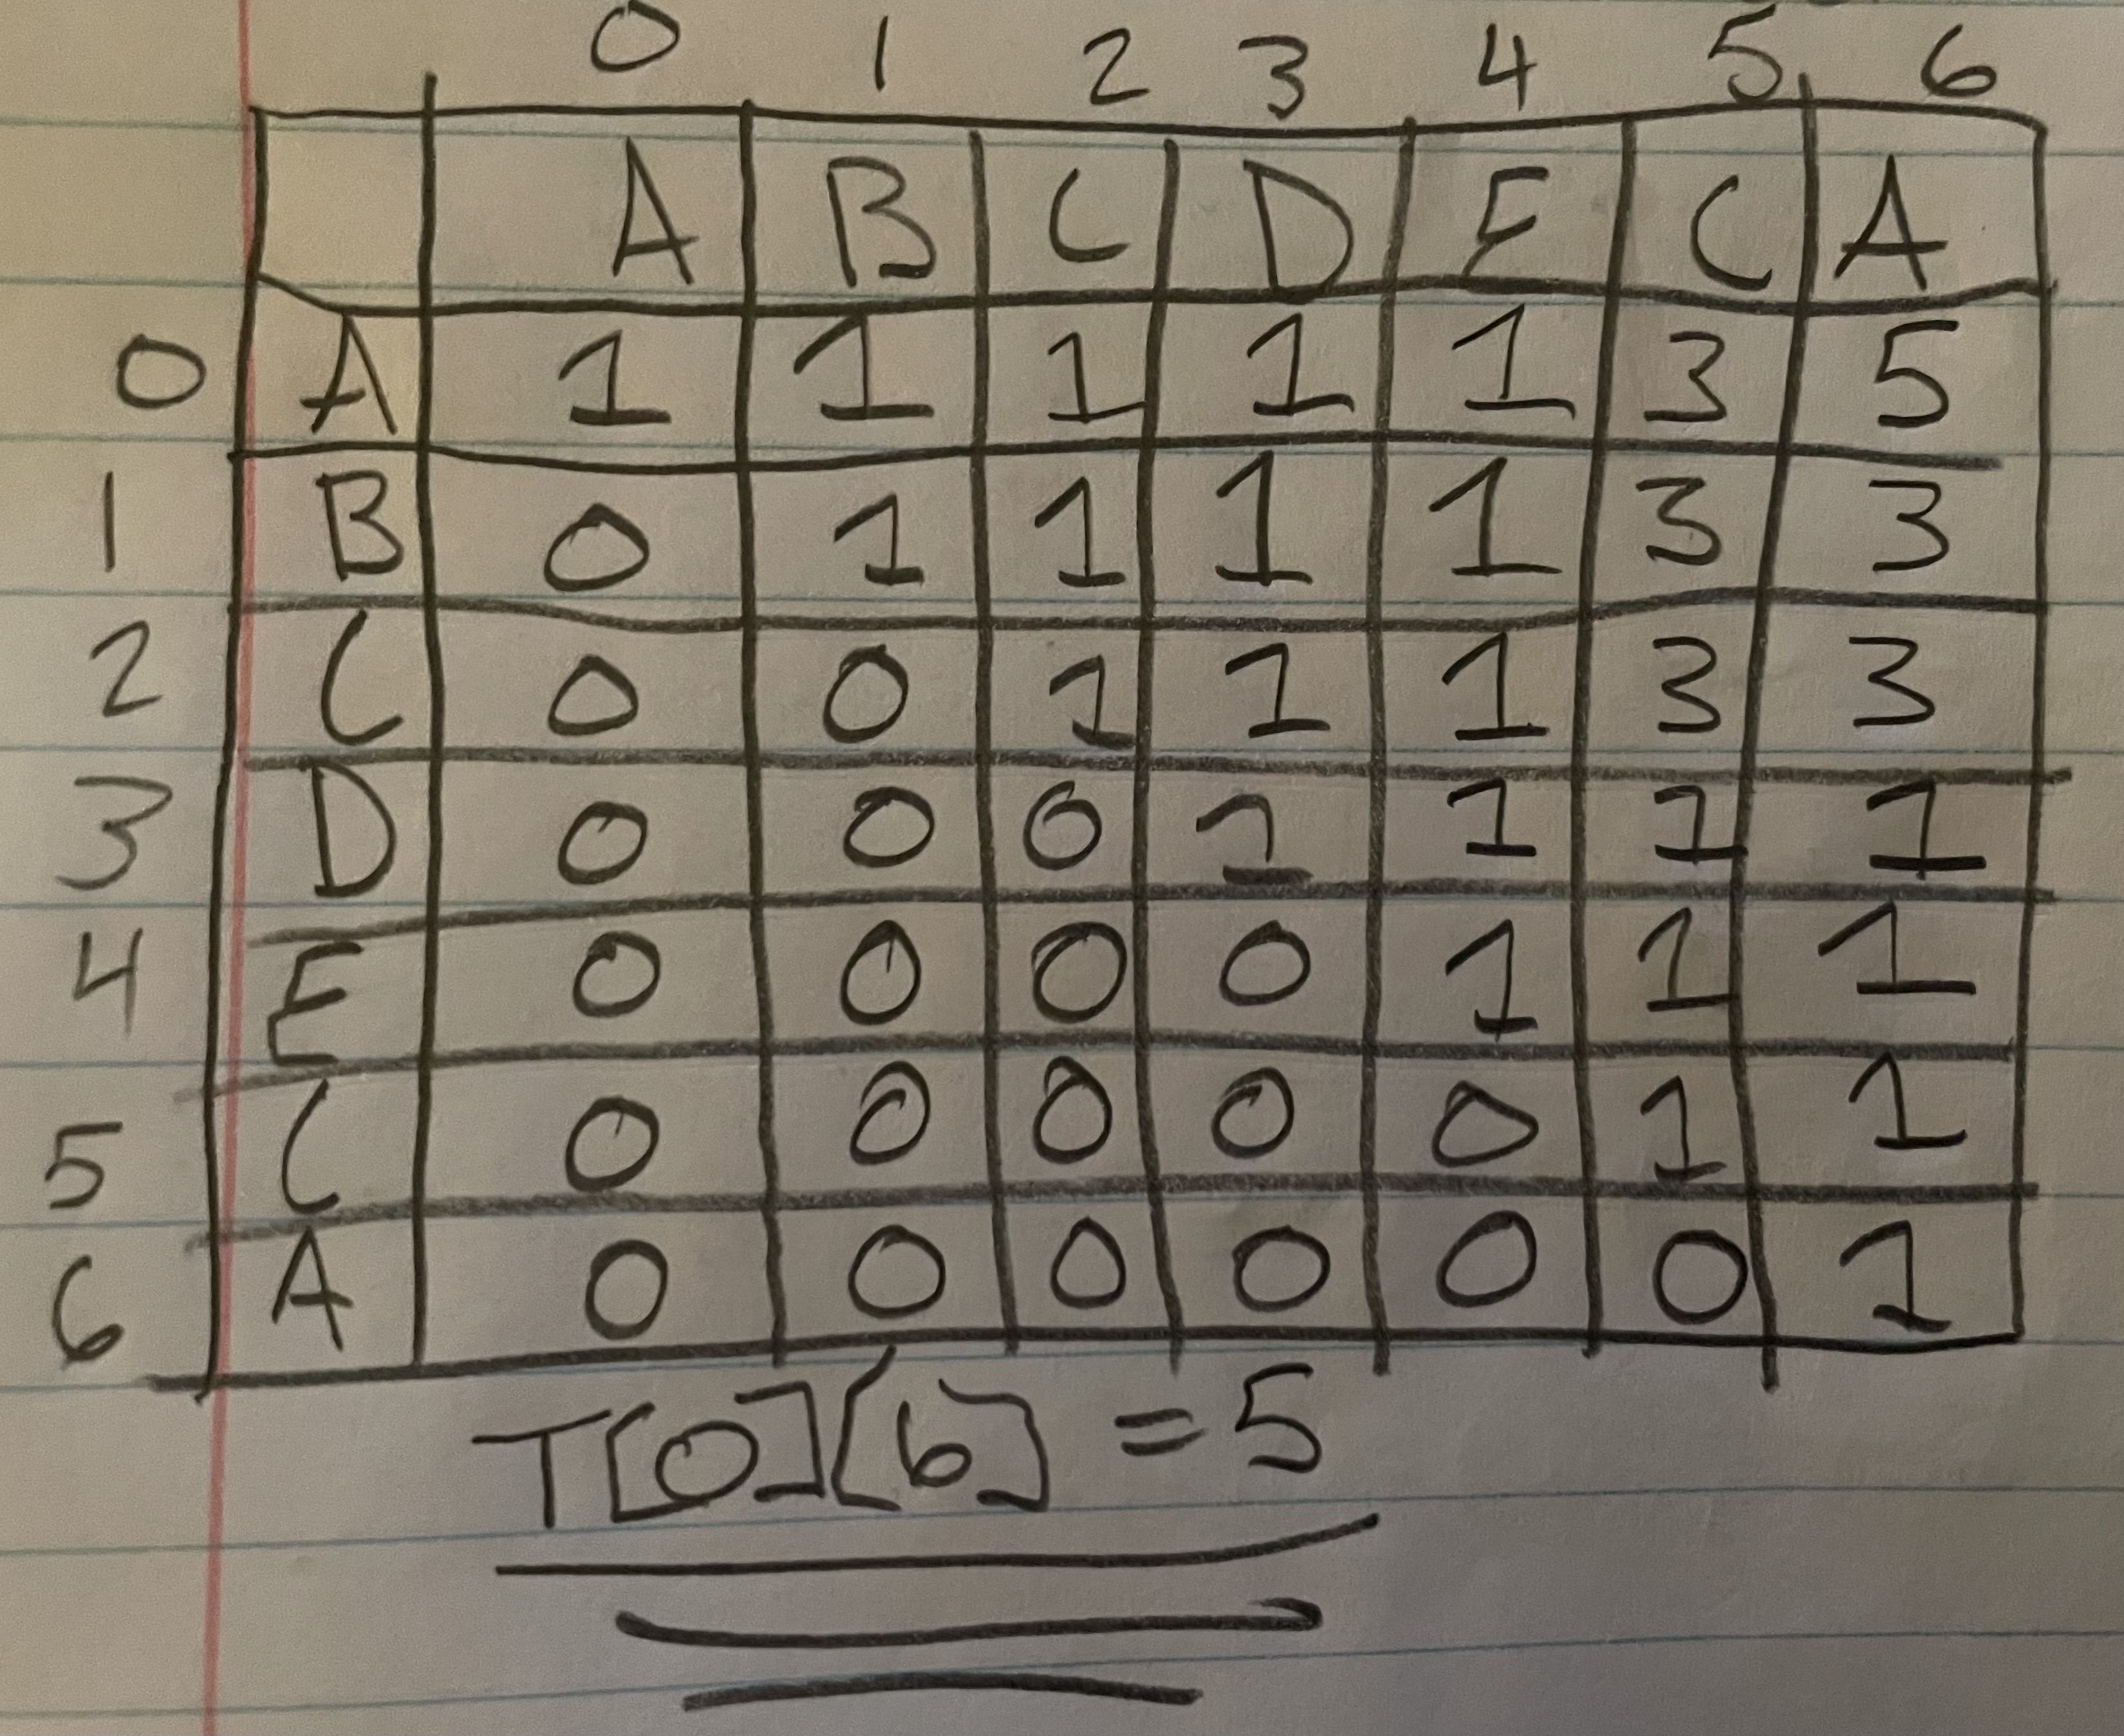 0 1 2 3 4 5 6
A B C D E C A
0 A 1 1 1 1 1 3 5
1 B 0 1 1 1 1 3 3
2 C 0 0 1 1 1 3 3
3 D 0 0 0 1 1 1 1
4 E 0 0 0 0 1 1 1
5 C 0 0 0 0 0 1 1
6 A 0 0 0 0 0 0 1
T[0][6] = 5